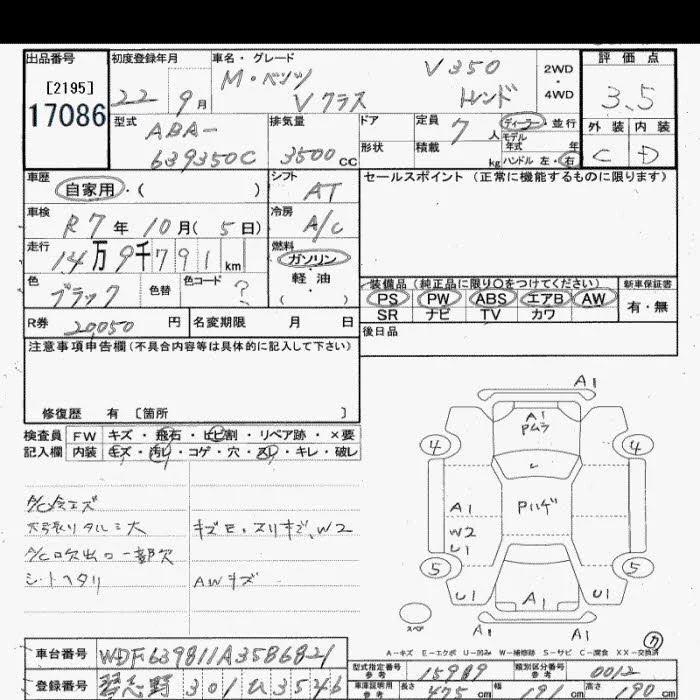 出品番号
[2195]
17086
初度登録年月
22 9月
車名・グレード
M・ベンツ V350
Vクラス トレンド
2WD
・
4WD
評価点
3.5
外装 内装
C D
型式
ABA-
639350C
排気量
3500cc
ドア
形状
定員
7人
積載
kg
ディーラー 並行
モデル
年式 年
ハンドル 左・右
車歴
自家用・( )
シフト
AT
セールスポイント(正常に機能するものに限ります)
車検
R7年10月(5日)
冷房
A/C
走行
14万9千791km
燃料
ガソリン
・
軽油
( )
色
ブラック
色替
色コード
?
装備品(純正品に限り〇をつけてください)
PS PW ABS エアB AW
SR ナビ TV カワ
新車保証書
有・無
後日品
R券 20,050円
名変期限 月 日
注意事項申告欄(不具合内容等は具体的に記入して下さい)
修復歴 有 〔箇所 〕
検査員 FW キズ・飛石・ヒビ割・リペア跡・×要
記入欄 内装 キズ・汚レ・コゲ・穴・スレ・キレ・破レ
天張りタルミ大 キズE、スリキズ、W2
A/C吹出口一部欠
シートヘタリ AWキズ
A1
A1
Pムラ
4 4
A1
W2
U1
Pハゲ
5 5
U1 U1
A1
A1 A1
スペア
A-キズ E-エクボ U-凹み W-補修跡 S-サビ C-腐食 XX-交換済
車台番号 WDF639811A3586821
登録番号 習志野 301 ひ 3546
型式指定番号
参考
15989
類別区分番号
参考
0012
車検証明用
参考
長さ 475cm 幅 191cm 高さ 190cm